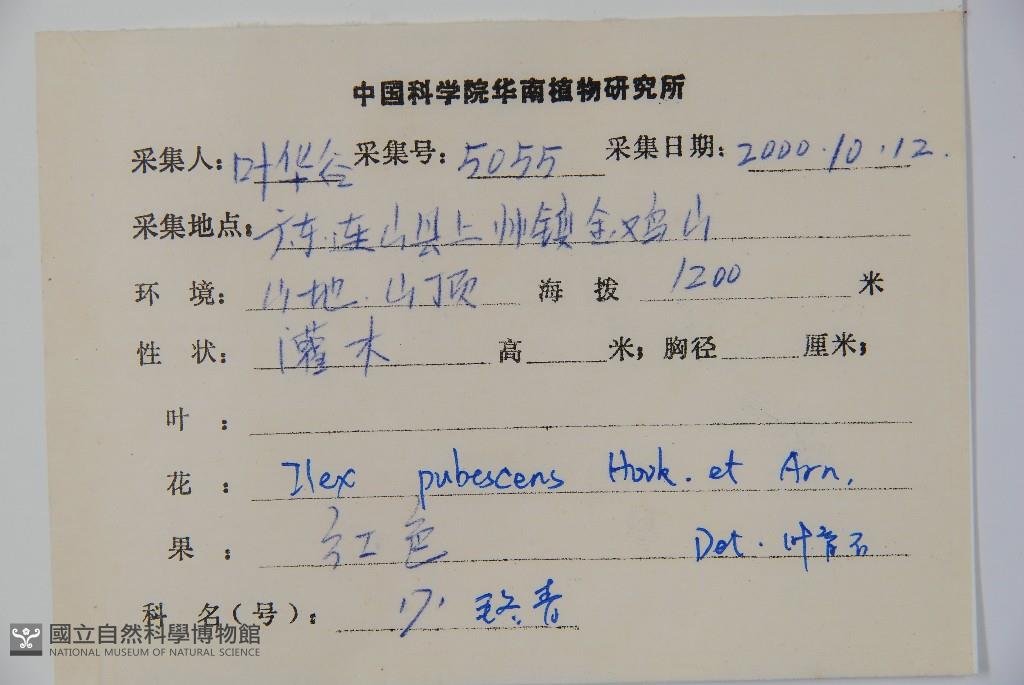 中国科学院华南植物研究所
采集人: 叶华谷 采集号: 5055 采集日期: 2000.10.12.
采集地点: 广东连山县上帅镇金鸡山
环 境: 山地.山顶 海 拨 1200 米
性 状: 灌木 高 米; 胸径 厘米;
叶 :
花 : Ilex pubescens Hook. et Arn.
果 : 红色 Det. 叶育石
科 名(号): 171 冬青
國立自然科學博物館
NATIONAL MUSEUM OF NATURAL SCIENCE